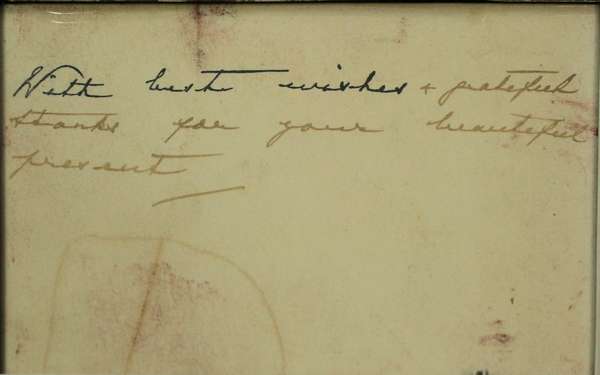 With best wishes + grateful
thanks for your beautiful
present